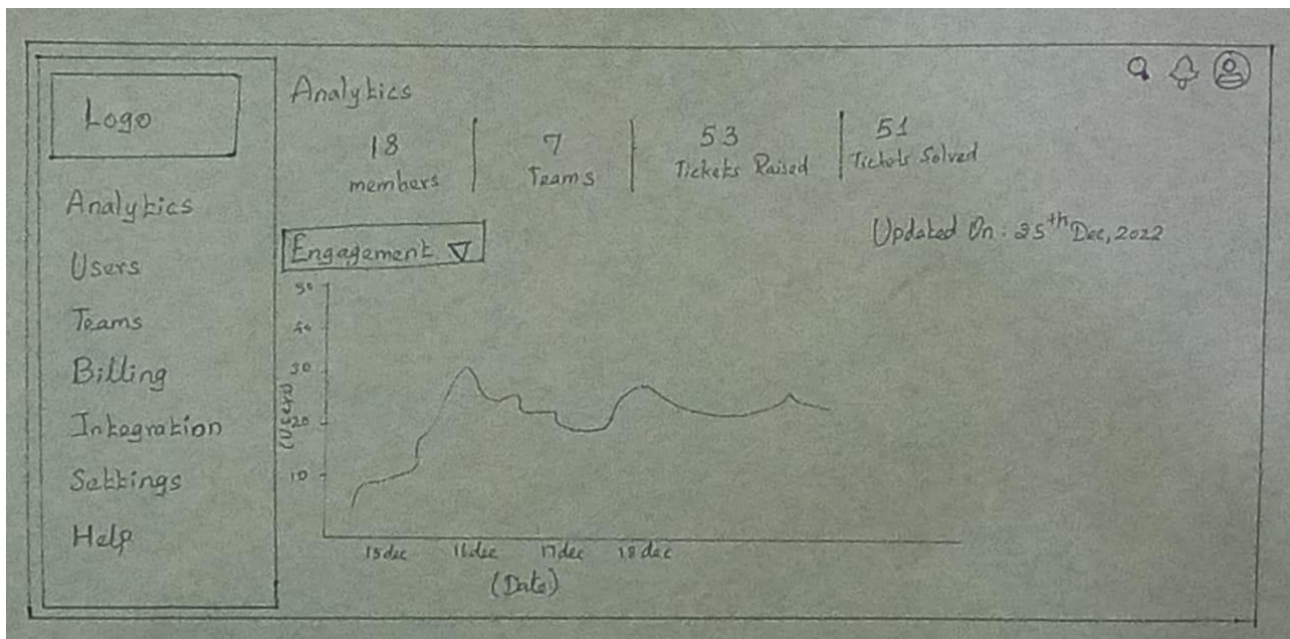 Logo
Analytics
Users
Teams
Billing
Integration
Settings
Help
Analytics
18
members
7
Teams
53
Tickets Raised
51
Tickets Solved
Updated On: 25th Dec, 2022
Engagement
50
40
30
20
10
(Users)
15dec 16dec 17dec 18dec
(Date)